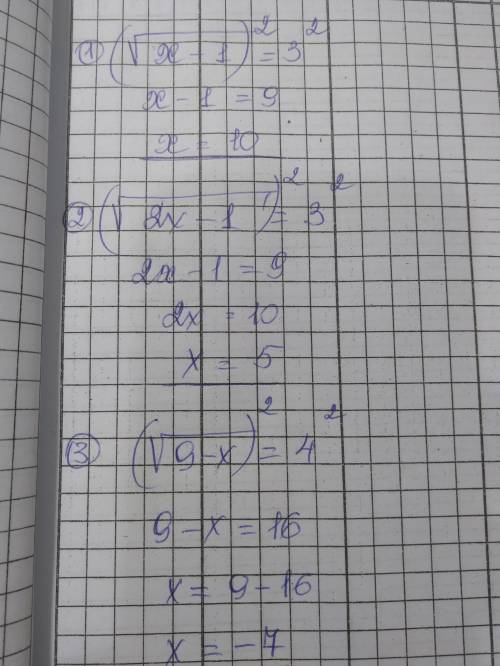 ① (√x - 1)² = 3²
x - 1 = 9
x = 10
② (√2x - 1)² = 3²
2x - 1 = 9
2x = 10
x = 5
③ (√9 - x)² = 4²
9 - x = 16
x = 9 - 16
x = -7